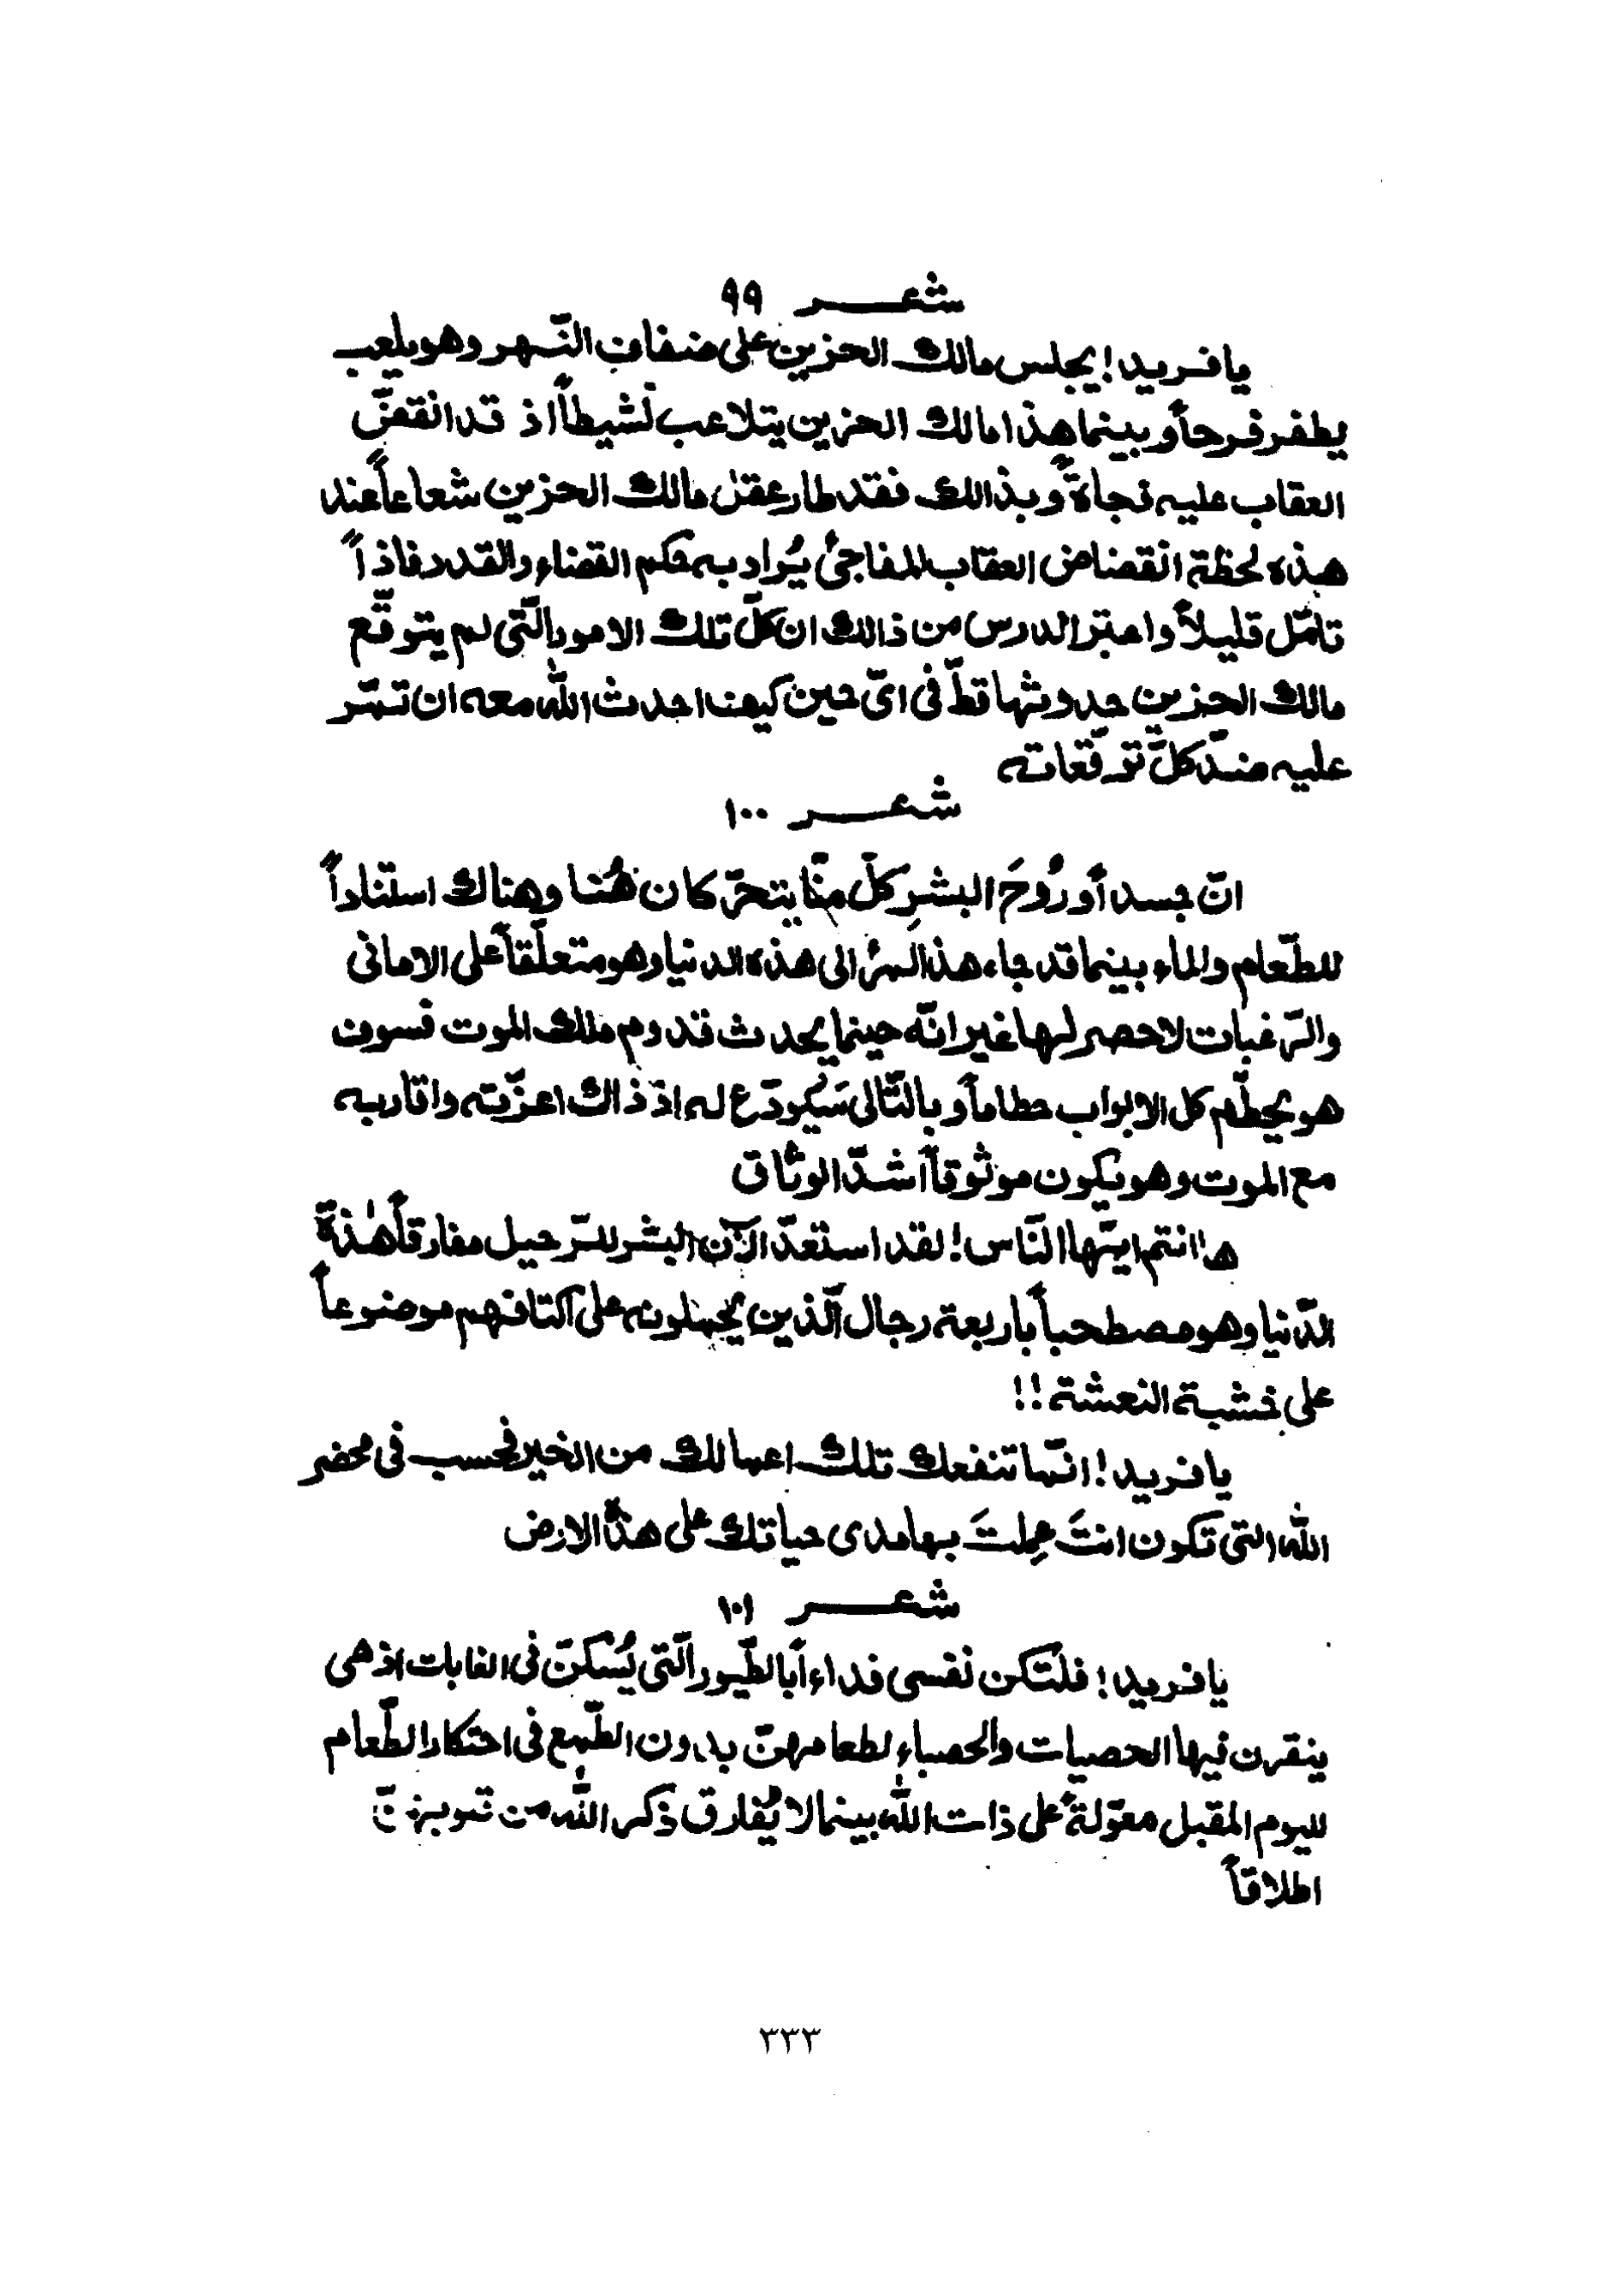 شعر ۹۹
يا فريد! يجلس مالك الحزين على ضفاف النّهر وهو يلعب
يطفر فرحاً و بينما هذا مالك الحزين يتلاعب نشيطاً اذ قد انقضّ
العقاب عليه فجاةً و بذالك فقد طار عقل مالك الحزين شعاعاً عند
هذه لحظة انقضاض العقاب المفاجئ يُراد به حكم القضاء والقدر فاذاً
تامّل قليلاً واعتبر الدرس من ذالك ان كلّ تلك الامور الّتى لم يتوقّع
مالك الحزين حدوثها قطّ فى اىّ حين كيف احدث الله معه ان تمرّ
عليه ضدّ كلّ توقّعاته
شعر ۱۰۰
انّ جسد أو رُوحَ البشرِ كلّ منّا يتحرّ كان هُنا وهناك استناداً
للطّعام والماء بينما قد جاء هذا المرئ الى هذه الدنيا وهو متعلّقاً على الامانى
والرّغبات لا حصر لها غير انّه حينما يحدث قدوم ملك الموت فسوف
هو يحطّم كل الابواب حطاماً و بالتّالى سَيُودّع له اذ ذاك اعزّته واقاربه
مع الموت وهو يكون موثوقاً اشدّ الوثاق
ها انتم ايّتها النّاس! لقد استعدّ الآن البشر للرّحيل مفارقاً هٰذة
الدّنيا وهو مصطحباً باربعة رجال الّذين يحملونه على اكتافهم موضوعاً
على خشبة النعشة!!
يا فريد! انّما تنفعك تلك اعمالك من الخير فحسب فى محضر
الله التى تكون انتَ عمِلتَ بها مدى حياتك على هذا الارض
شعر ۱۰۱
يا فريد! فلتكن نفسى فداء أبا لطّيور الّتى يُسكنّ فى الغابات اذ هى
ينقرن فيها الحصيات والحصباء لطعامهنّ بدون الطّمع فى احتكار الطّعام
لليوم المقبل معوّلةً على ذات الله بينما لا يُفارق ذكر الله من قلوبهنّ
اطلاقاً
۳۳۳